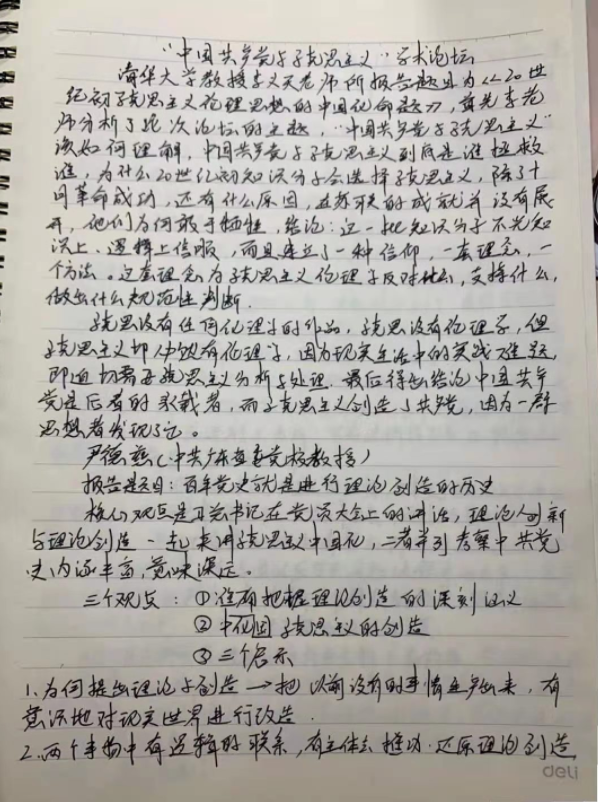 “中国共产党与马克思主义”学术论坛
清华大学教授李义天老师所报告题目为《20世
纪初马克思主义伦理思想的中国化命题》，首先李老
师分析了此次论坛的主题，“中国共产党与马克思主义”
该如何理解，中国共产党与马克思主义到底是谁拯救
谁，为什么20世纪初知识分子会选择马克思主义，除了十
月革命成功，还有什么原因，苏联的成就并没有展
开，他们为何敢于牺牲，结论：这一批知识分子不光知
识上、逻辑上信服，而且建立了一种信仰，一套理念，一
个方法。这套理念为马克思主义伦理学反对什么，支持什么，
做出什么规范性判断．
马克思没有任何伦理学的作品，马克思没有伦理学，但
马克思主义却有伦理学，因为现实生活中的实践难题
即迫切需要马克思主义分析与处理．最后得出结论中国共产
党是后者的承载者，而马克思主义创造了共产党，因为一群
思想者发现了它。
尹德慈（中共广东省委党校教授）
报告题目：百年党史就是进行理论创造的历史
核心观点是习总书记在党员大会上的讲话，理论创新
与理论创造一起来讲马克思主义中国化，二者并列考察中共党
史内涵丰富，意味深远。
三个观点：①准确把握理论创造的深刻汉义
②中国马克思主义的创造
③三个启示
1.为何提出理论与创造→把以前没有的事情生产出来，有
意识地对现实世界进行改造．
2.两个事物中有逻辑的联系，有主体去推动．还原理论创造
deli